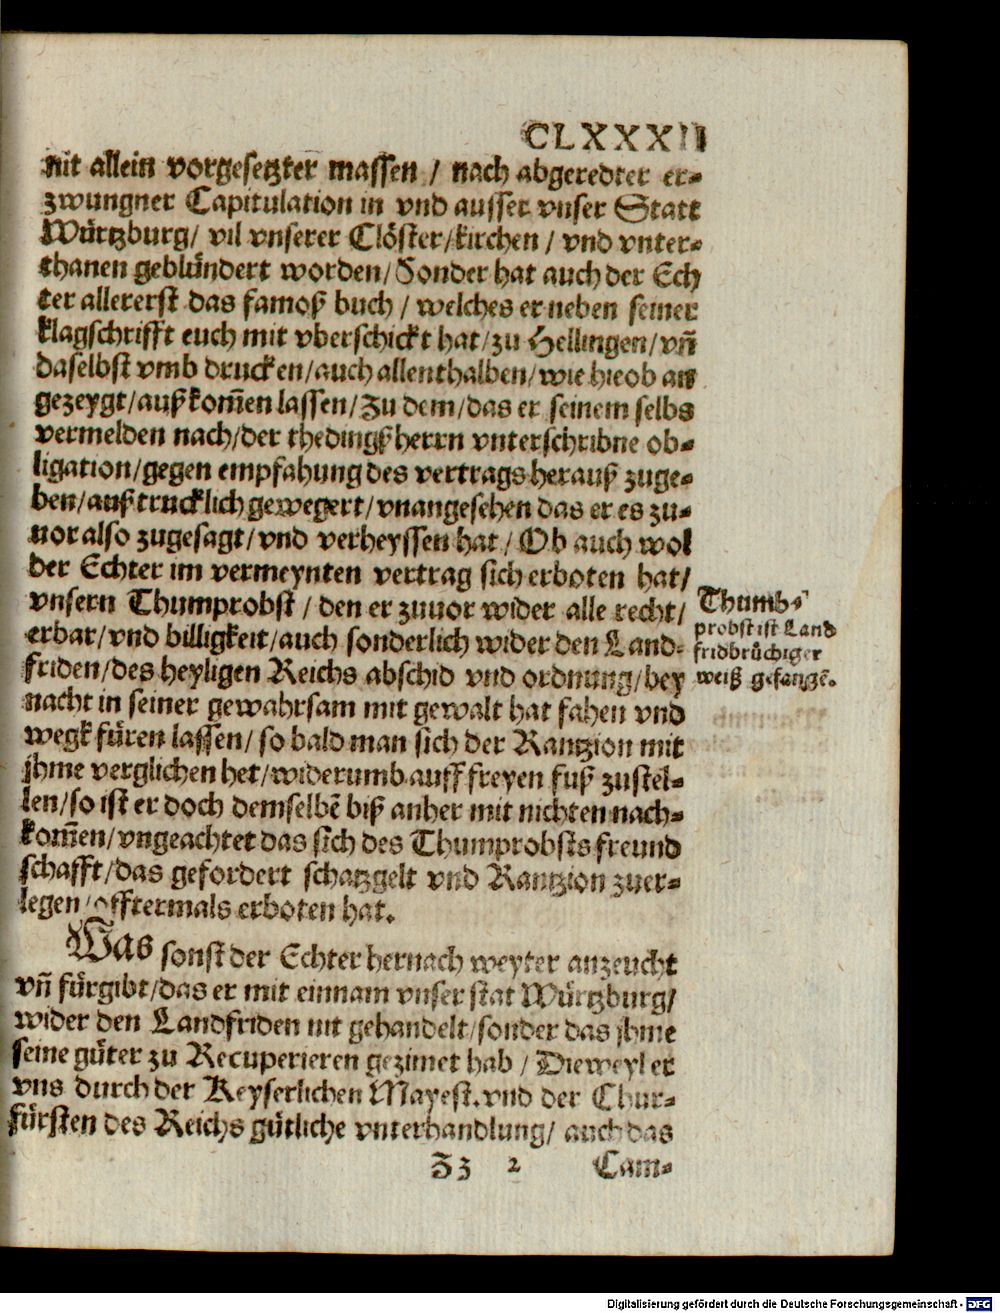 CLXXXII
nit allein vorgesetzter massen / nach abgeredter er⸗
zwungner Capitulation in vnd ausser vnser Statt
Würtzburg/ vil vnserer Clöster/kirchen / vnd vnter⸗
thanen geblündert worden/ Sonder hat auch der Ech
ter allererst das famoß buch / welches er neben seiner
klagschrifft euch mit vberschickt hat/zu Hellingen/vñ
daselbst vmb drucken/auch allenthalben/wie hieob an
gezeygt/außkom̃en lassen/Zu dem/das er seinem selbs
vermelden nach/der thedingßherrn vnterschribne ob⸗
ligation/gegen empfahung des vertrags herauß zuge⸗
ben/außtrucklich gewegert/vnangesehen das er es zu⸗
uor also zugesagt/vnd verheyssen hat / Ob auch wol
der Echter im vermeynten vertrag sich erboten hat/
vnsern Thumprobst / den er zuuor wider alle recht/
erbar/vnd billigkeit/auch sonderlich wider den Land⸗
friden/des heyligen Reichs abschid vnd ordnung/bey
nacht in seiner gewahrsam mit gewalt hat fahen vnd
wegk füren lassen/ so bald man sich der Rantzion mit
jhme verglichen het/widerumb auff freyen fuß zustel⸗
len/so ist er doch demselbē biß anher mit nichten nach⸗
kom̃en/vngeachtet das sich des Thumprobsts freund
schafft/das gefordert schatzgelt vnd Rantzion zuer⸗
legen/offtermals erboten hat.
Thumb⸗
probst ist Land
fridbrüchiger
weiß gefangē.
Was sonst der Echter hernach weyter anzeucht
vñ fürgibt/das er mit einnam vnser stat Würtzburg/
wider den Landfriden nit gehandelt/sonder das jhme
seine güter zu Recuperieren gezimet hab / Dieweyl er
vns durch der Keyserlichen Mayest. vnd der Chur⸗
fürsten des Reichs gütliche vnterhandlung/ auch das
Zz 2 Cam⸗
Digitalisierung gefördert durch die Deutsche Forschungsgemeinschaft - DFG